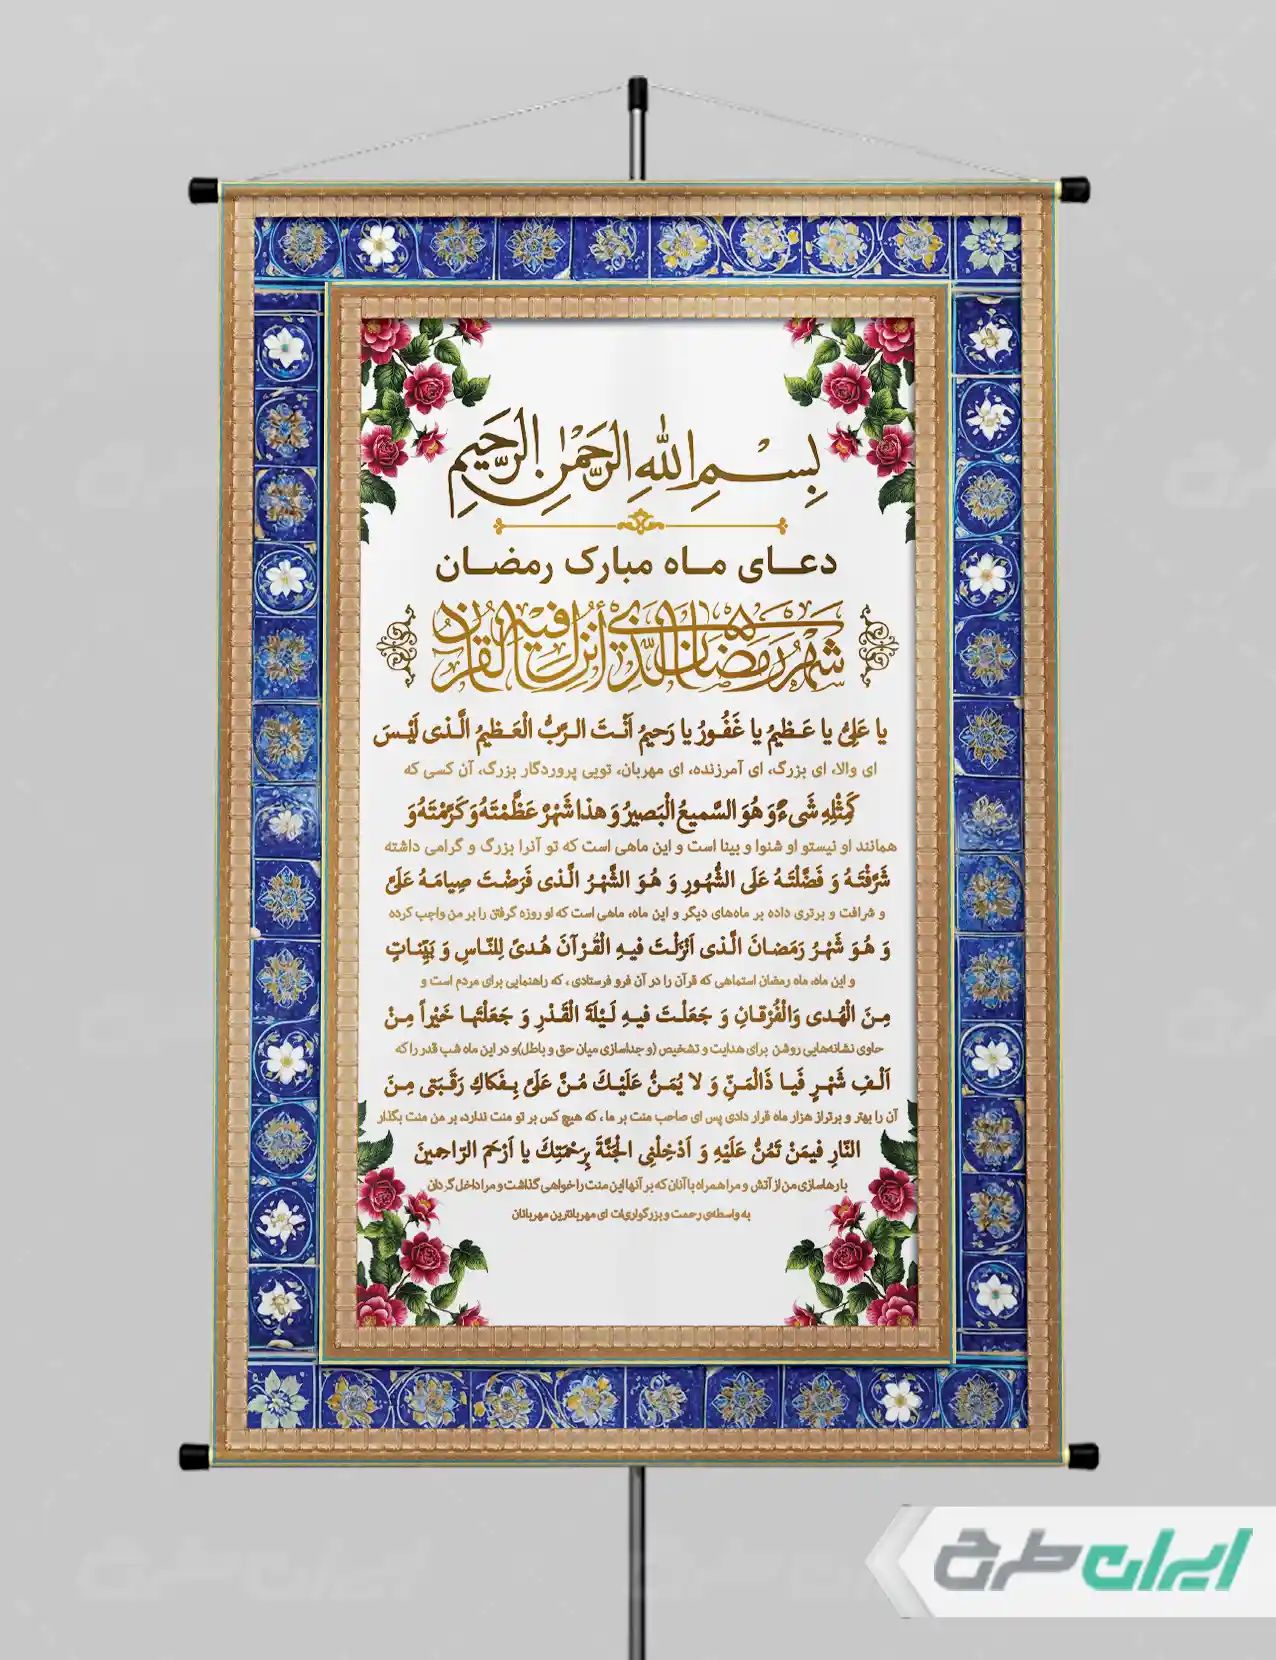 بِسْمِ اللهِ الرَّحْمٰنِ الرَّحِيمِ
دعـای مـاه مبارک رمضـان
شَهْرُ رَمَضَانَ الَّذِي أُنزِلَ فِيهِ الْقُرْآنُ
یا عَلِیُّ یا عَـظیمُ یا غَفُـورُ یا رَحیمُ اَنْـتَ الـرَّبُّ الْعَـظیمُ الَّـذی لَیْـسَ
ای والا، ای بزرگ، ای آمرزنده، ای مهربان، تویی پروردگار بزرگ، آن کسی که
کَمِثْلِهِ شَیءٌ وَ هُوَ السَّمیعُ الْبَصیرُ وَ هذا شَهْرٌ عَظَّمْتَهُ وَ کَرَّمْتَهُ وَ
همانند او نیستو او شنوا و بینا است و این ماهی است که تو آنرا بزرگ و گرامی داشته
شَرَّفْتَـهُ وَ فَضَّلْتَـهُ عَلَی الشُّهُورِ وَ هُـوَ الشَّهْـرُ الَّـذی فَرَضْـتَ صِیامَـهُ عَلَیَّ
و شرافت و برتری داده بر ماه‌های دیگر و این ماه، ماهی است که تو روزه گرفتن را بر من واجب کرده
وَ هُـوَ شَهْـرُ رَمَضـانَ الَّـذی اَنْزَلْـتَ فیـهِ الْقُـرْآنَ هُـدیً لِلنّـاسِ وَ بَیِّنـاتٍ
و این ماه، ماه رمضان استماهی که قرآن را در آن فرو فرستادی ، که راهنمایی برای مردم است و
مِـنَ الْهُـدی وَالْفُرْقـانِ وَ جَعَلْـتَ فیـهِ لَیْلَةَ الْقَـدْرِ وَ جَعَلْتَهـا خَیْراً مِـنْ
حاوی نشانه‌هایی روشن برای هدایت و تشخیص (و جداسازی میان حق و باطل)و در این ماه شب قدر را که
اَلْـفِ شَهْـرٍ فَیـا ذَالْمَـنِّ وَ لا یُمَـنُّ عَلَیْـكَ مُـنَّ عَلَیَّ بِـفَکاكِ رَقَـبَتی مِـنَ
آن را بهتر و برتراز هزار ماه قرار دادی پس ای صاحب منت بر ما ، که هیچ کس بر تو منت ندارد، بر من منت بگذار
النّارِ فیمَنْ تَمُنُّ عَلَیْهِ وَ اَدْخِلْنِی الْجَنَّةَ بِرَحْمَتِكَ یا اَرْحَمَ الرّاحمینَ
با رهاسازی من از آتش و مرا همراه با آنان که بر آنها این منت را خواهی گذاشت و مرا داخل گردان
به واسطه‌ی رحمت و بزرگواری‌ات ای مهربانترین مهربانان
ایران طرح